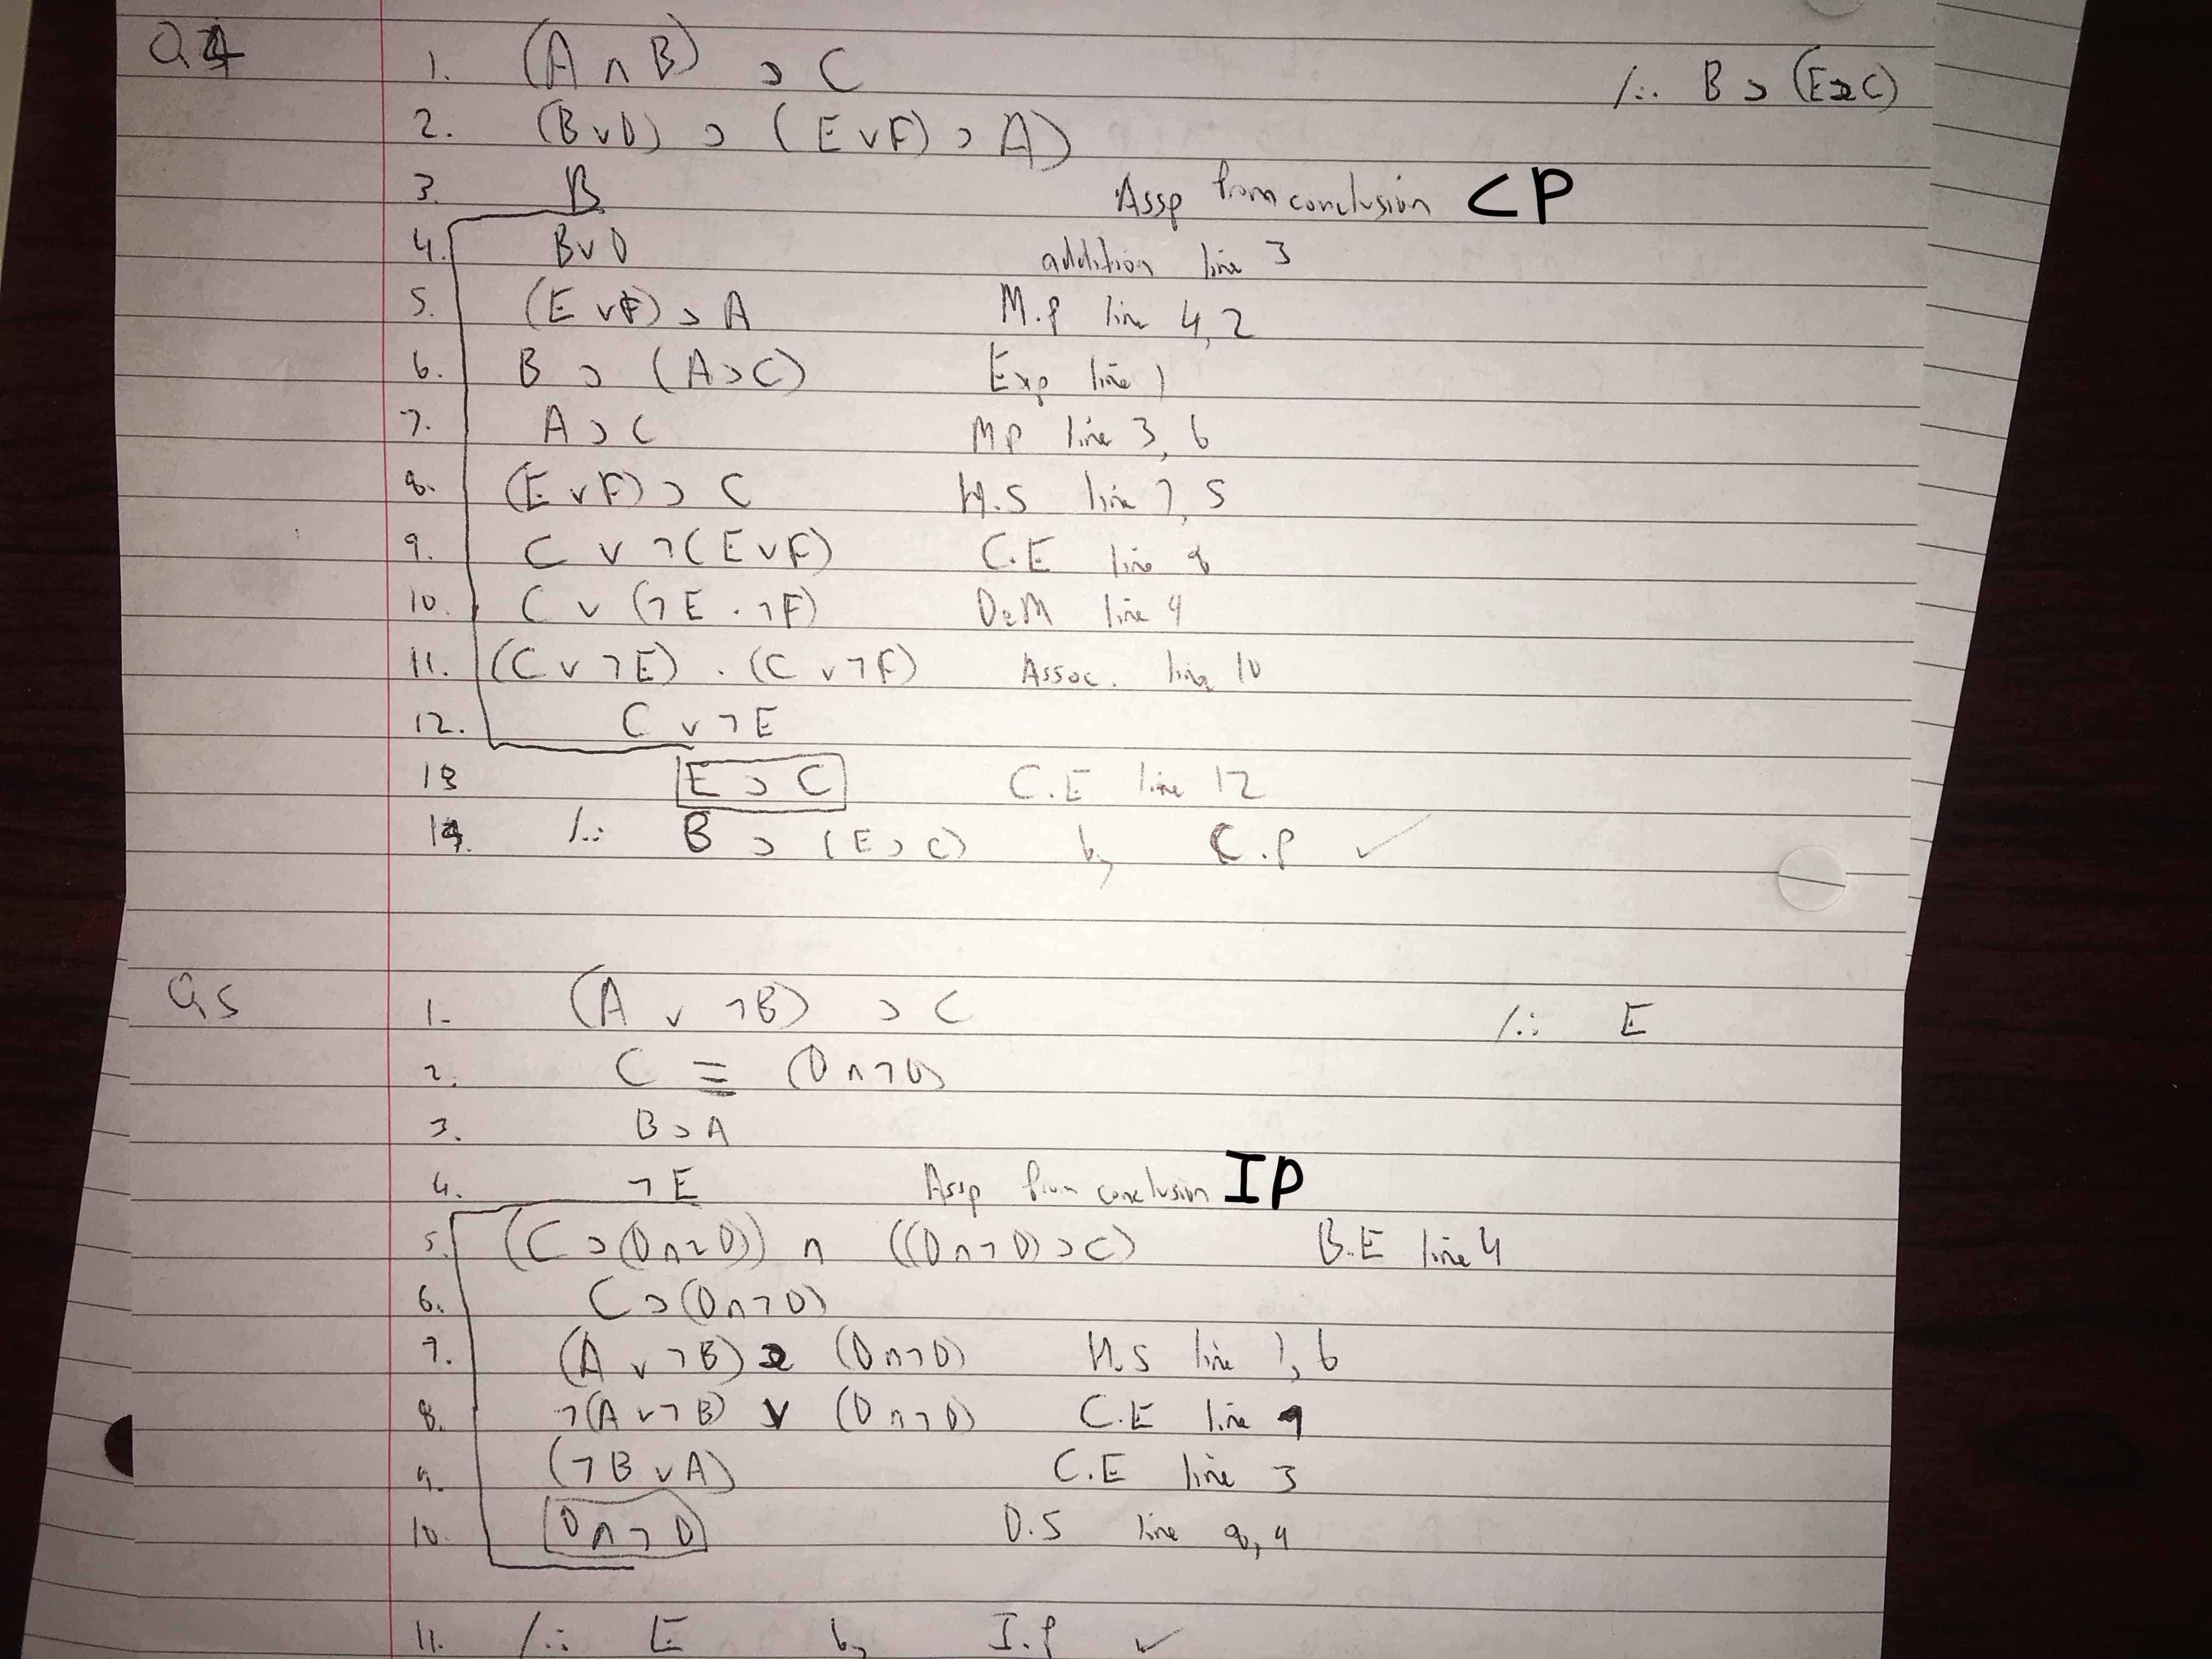 Q4 1. (A ∩ B) ⊃ C /∴ B ⊃ (E⊃C)
2. (B∨D) ⊃ ( E ∨F) ⊃ A)
3. B Assp from conclusion CP
4. B∨D addition line 3
5. (E ∨F) ⊃ A M.P line 4, 2
6. B ⊃ (A⊃C) Exp line 1
7. A ⊃ C MP line 3, 6
8. (E ∨ F) ⊃ C H.S line 7, 5
9. C ∨ ¬(E∨F) C.E line 8
10. C ∨ (¬E · ¬F) DeM line 9
11. (C ∨ ¬E) · (C ∨¬F) Assoc. line 10
12. C ∨ ¬E
13 E ⊃ C C.E line 12
14. /∴ B ⊃ (E⊃C) by C.P ✓
Q5 1. (A ∨ ¬B) ⊃ C /∴ E
2. C ≡ (D ∩ ¬D)
3. B⊃A
4. ¬E Assp from conclusion IP
5. (C ⊃(D∩¬D)) ∩ ((D∩¬D)⊃C) B.E line 4
6. C⊃(D∩¬D)
7. (A ∨ ¬B) ⊃ (D∩¬D) H.S line 1, 6
8. ¬(A ∨¬B) ∨ (D∩¬D) C.E line
9. (¬B ∨A) C.E line 3
10. D∩¬D D.S line 8, 9
11. /∴ E by I.P ✓